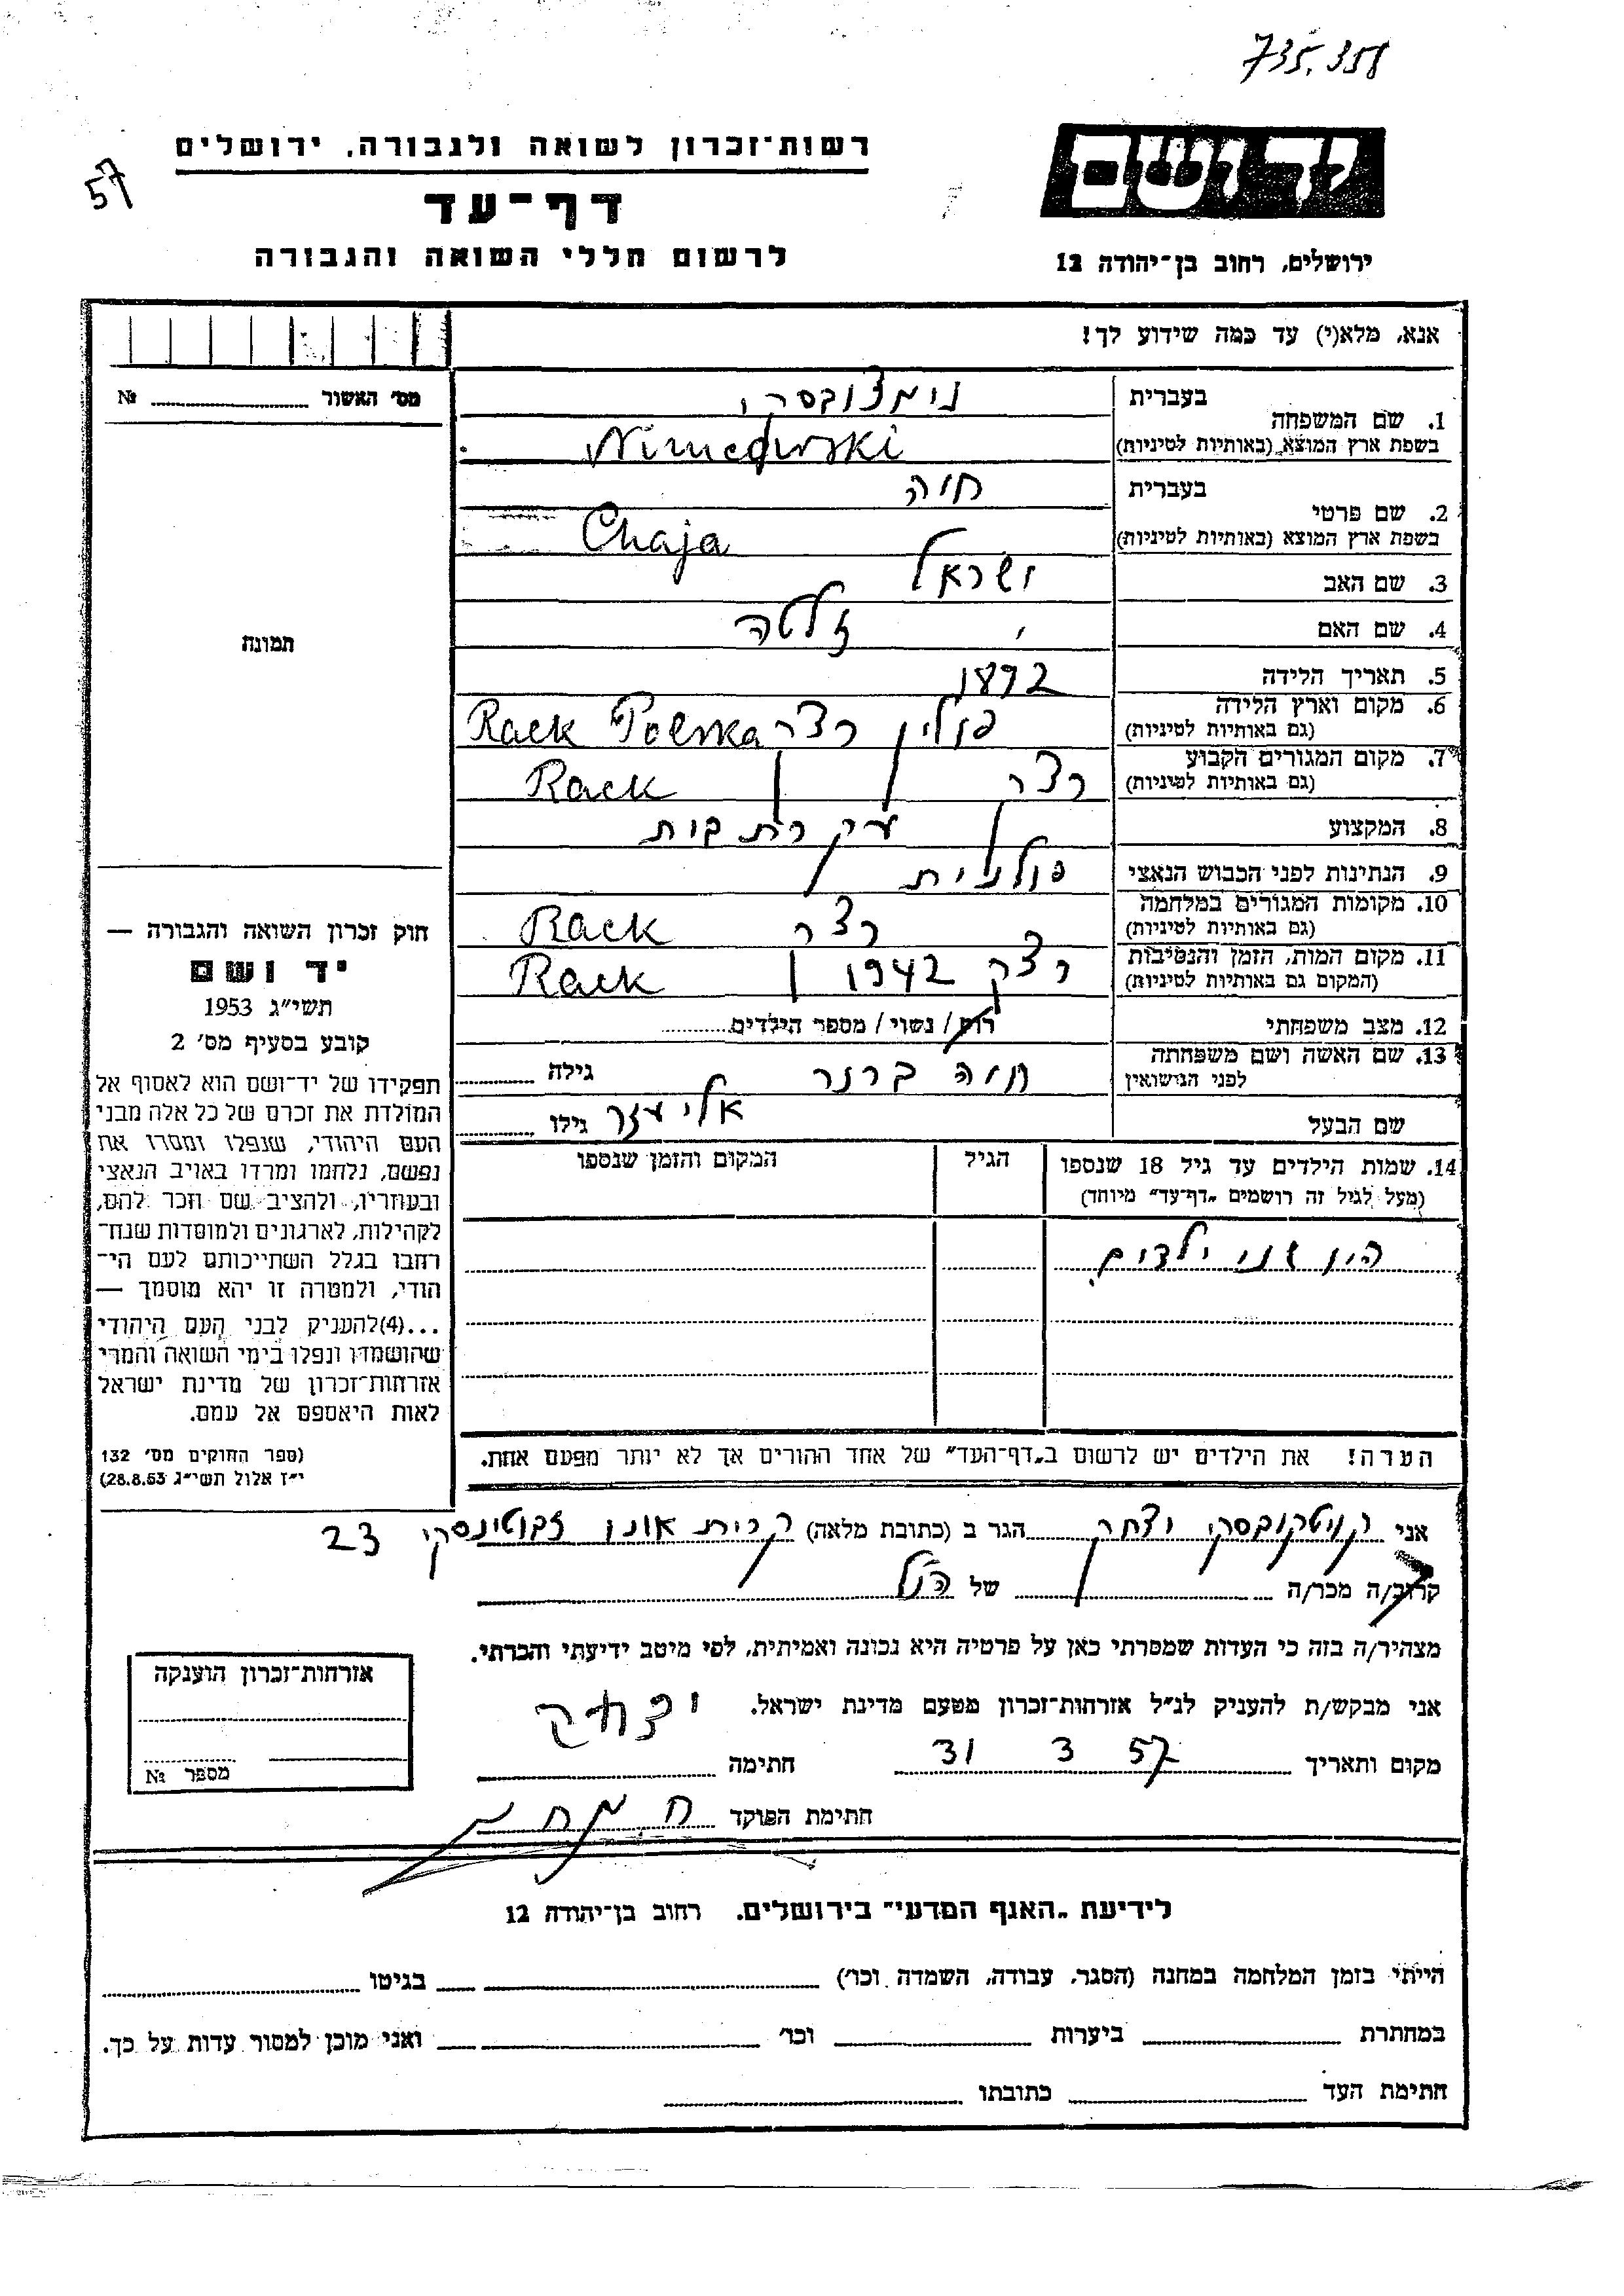 735.358
57
רשות־זכרון לשואה ולגבורה. ירושלים
יד ושם
דף־עד
לרשום חללי השואה והגבורה
ירושלים, רחוב בן־יהודה 12
אנא, מלא(י) עד כמה שידוע לך!
מס׳ האשור № 
1. שם המשפחה בעברית נימצובסקי
בשפת ארץ המוצא (באותיות לטיניות)
2. שם פרטי בעברית חיה
בשפת ארץ המוצא (באותיות לטיניות) Chaja
3. שם האב ישראל
4. שם האם זלטה
5. תאריך הלידה 1892
6. מקום וארץ הלידה (גם באותיות לטיניות) פולין Rack Polska
7. מקום המגורים הקבוע (גם באותיות לטיניות) Rack
8. המקצוע עקרת בית
9. הנתינות לפני הכבוש הנאצי פולנית
10. מקומות המגורים במלחמה (גם באותיות לטיניות) Rack
11. מקום המות, הזמן והנסיבות (המקום גם באותיות לטיניות) 1942 Rack
12. מצב משפחתי רוק / נשוי / מספר הילדים
13. שם האשה ושם משפחתה לפני הנישואין חיה ברנר גילה
שם הבעל אליעזר גילו
14. שמות הילדים עד גיל 18 שנספו הגיל המקום והזמן שנספו
(מעל לגיל זה רושמים „דף־עד״ מיוחד)
היו שני ילדים
הערה! את הילדים יש לרשום ב„דף־העד״ של אחד ההורים אך לא יותר מפעם אחת.
תמונה
חוק זכרון השואה והגבורה —
יד ושם
תשי״ג 1953
קובע בסעיף מס׳ 2
תפקידו של יד־ושם הוא לאסוף אל
המולדת את זכרם של כל אלה מבני
העם היהודי, שנפלו ומסרו את
נפשם, נלחמו ומרדו באויב הנאצי
ובעוזריו, ולהציב שם וזכר להם,
לקהילות, לארגונים ולמוסדות שנח־
רחבו בגלל השתייכותם לעם הי־
הודי, ולמטרה זו יהא מוסמך —
...(4)להעניק לבני העם היהודי
שהושמדו ונפלו בימי השואה והמרי
אזרחות־זכרון של מדינת ישראל
לאות היאספם אל עמם.
(ספר החוקים מס׳ 132
י״ז אלול תשי״ג 28.8.53)
אני קויטקובסקי יצחק הגר ב (כתובת מלאה) קרית אונו זבוטינסקי 23
קרוב/ה מכר/ה של הנ״ל
מצהיר/ה בזה כי העדות שמסרתי כאן על פרטיה היא נכונה ואמיתית, לפי מיטב ידיעתי והכרתי.
אני מבקש/ת להעניק לנ״ל אזרחות־זכרון מטעם מדינת ישראל.
מקום ותאריך 31 3 57 חתימה יצחק
חתימת הפוקד
אזרחות־זכרון הוענקה
מספר №
לידיעת „האגף המדעי״ בירושלים. רחוב בן־יהודה 12
הייתי בזמן המלחמה במחנה (הסגר, עבודה, השמדה וכו׳) בגיטו
במחתרת ביערות וכו׳ ואני מוכן למסור עדות על כך.
חתימת העד כתובתו